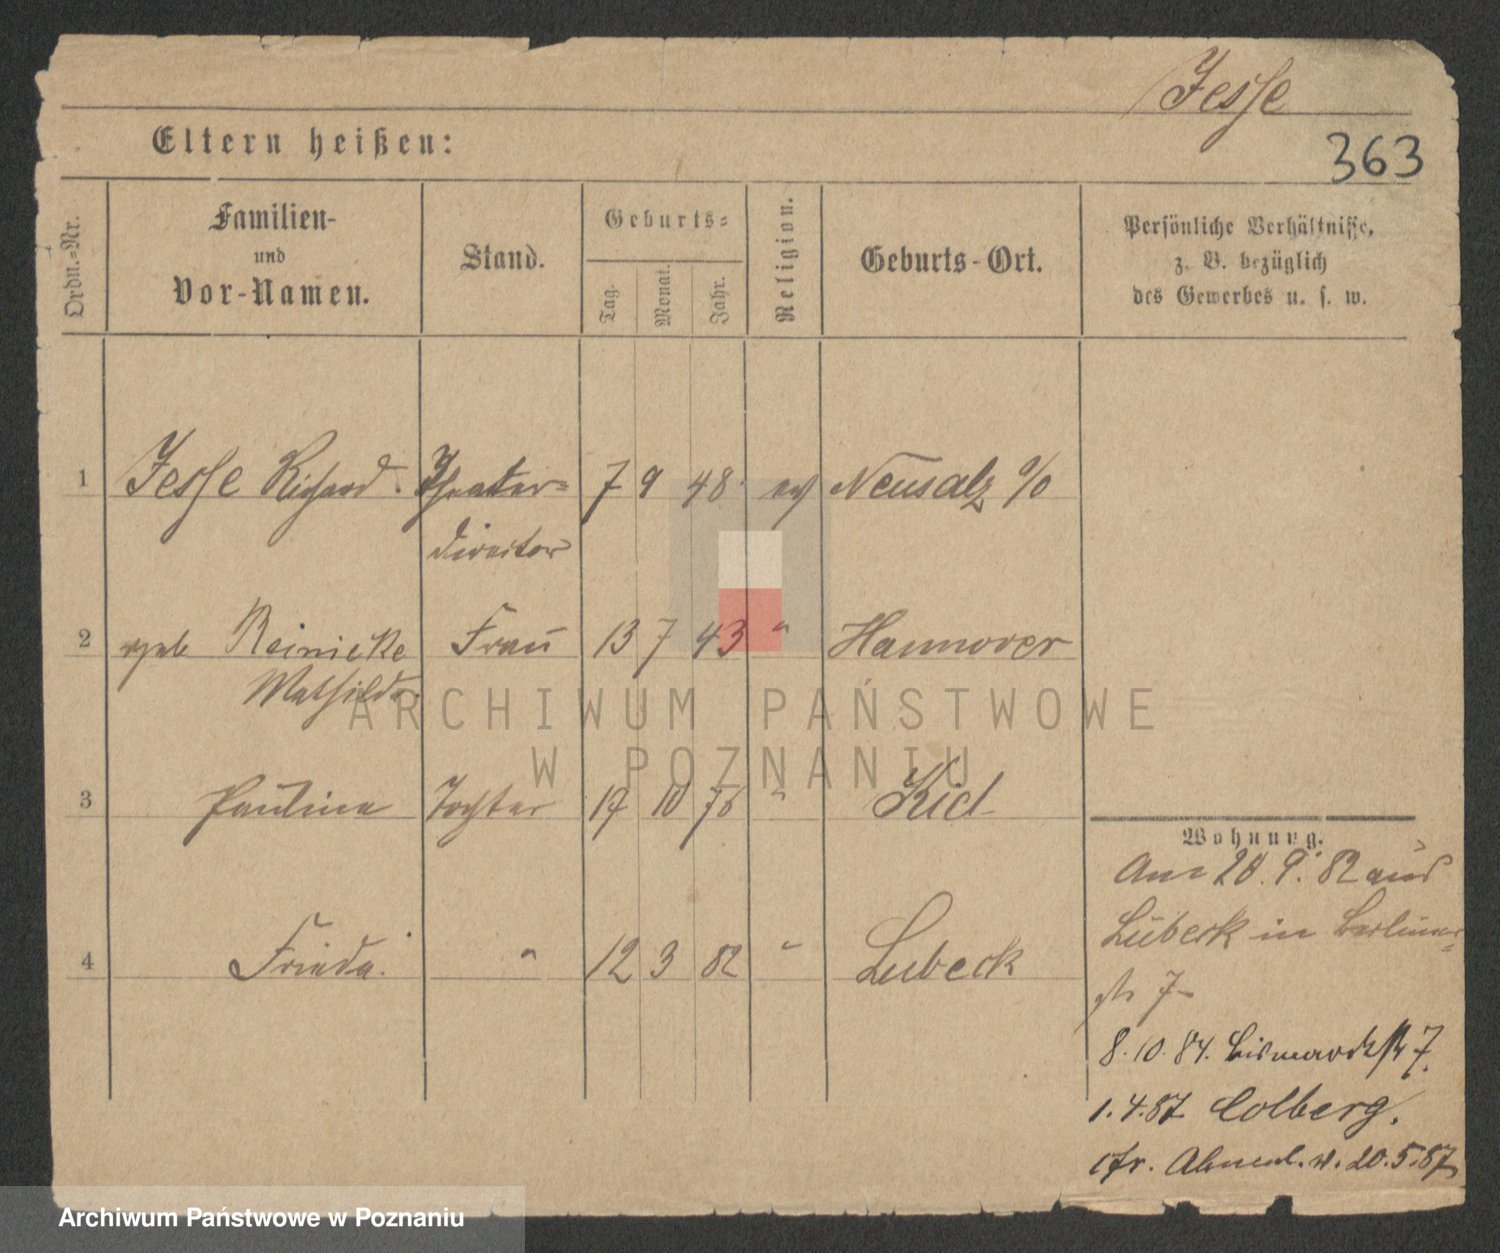 Jesse
Eltern heißen:
363
Ordn.-Nr.
Familien-
und
Vor-Namen.
Stand.
Geburts-
Tag.
Monat.
Jahr.
Religion.
Geburts-Ort.
Persönliche Verhältnisse,
z. B. bezüglich
des Gewerbes u. s. w.
1 Jesse Richard. Theater- 7 9 48 ev Neusalz a/o
director
2 geb Reinicke Frau 13 7 43 " Hannover
Mathilde.
ARCHIWUM PAŃSTWOWE
W POZNANIU
3 Paulina Tochter 10 " Kiel
4 Frieda. " 12 3 82 " Lubeck
Wohnung.
Am 20. 9. 82 aus
Lübeck in Berliner-
str 7-
8.10.84. Bismarckstr 7.
1.4.87 Colberg.
cfr. Abmeld. v. 20.5.87
Archiwum Państwowe w Poznaniu